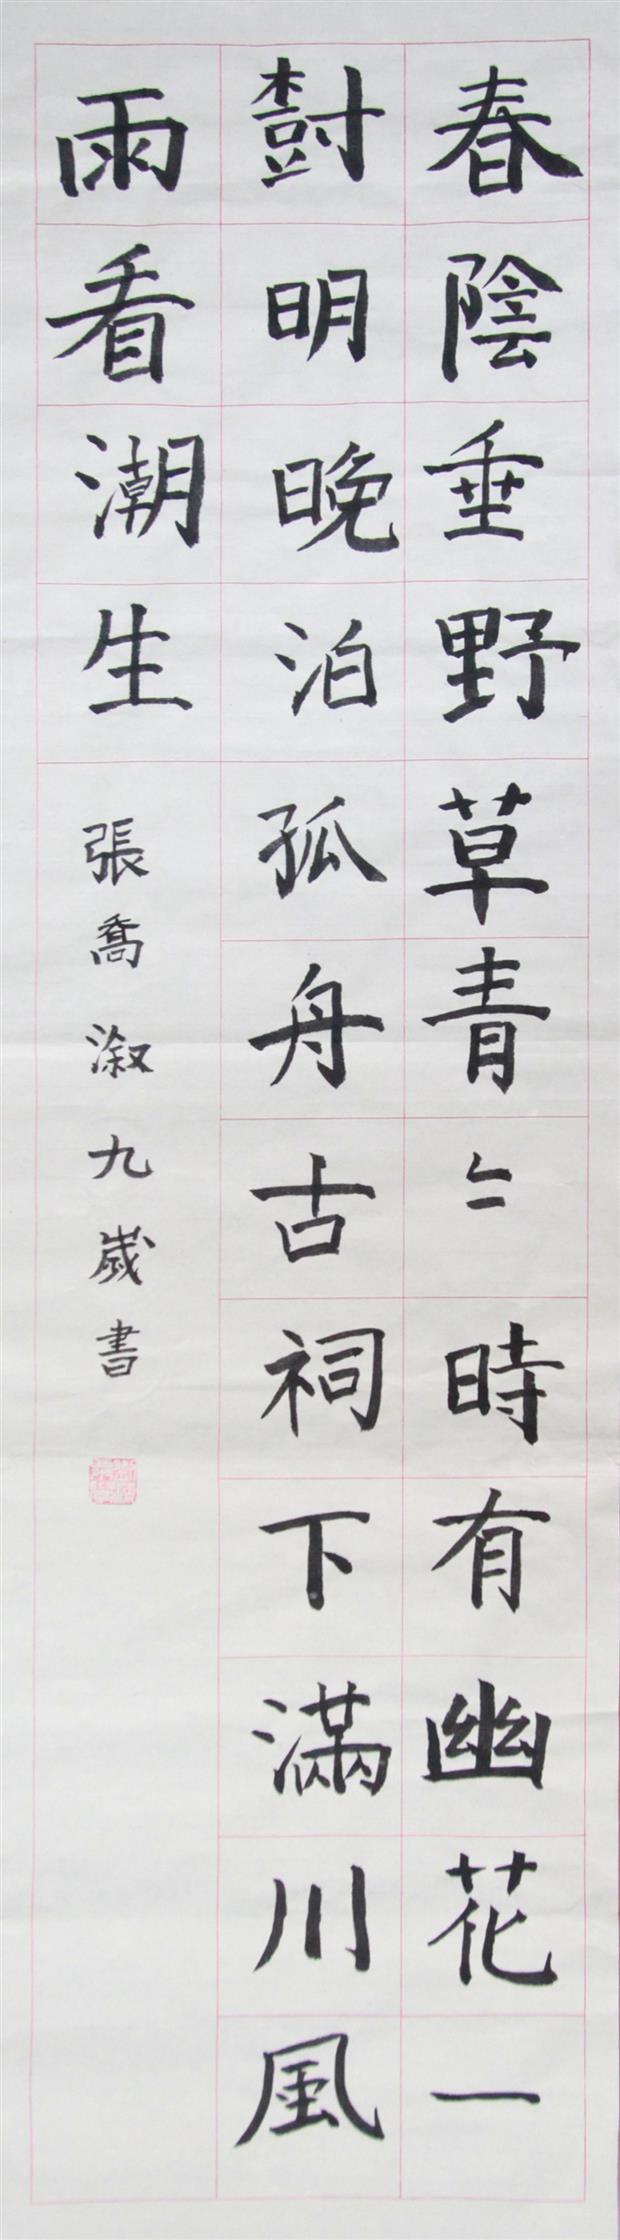 春陰垂野草青々時有幽花一
樹明晚泊孤舟古祠下滿川風
雨看潮生
張喬溆九歲書